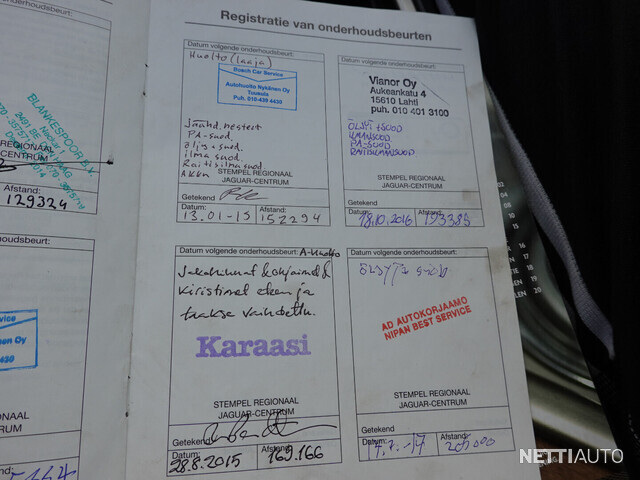 Registratie van onderhoudsbeurten
BLANKESPOOR B.V.
STEMPEL REGIONAAL
JAGUAR-CENTRUM
Afstand:
129324
Datum volgende onderhoudsbeurt:
Huolto (laaja)
Bosch Car Service
Autohuolto Nyténen Oy
Tuusula
Puh. 010-439 4430
Jäähd. nesteet
PA-suod.
öljy + suod.
ilma suod.
Raitisilmasuod.
Akku
STEMPEL REGIONAAL
JAGUAR-CENTRUM
Getekend
Datum: Afstand:
13.01-15 152294
Datum volgende onderhoudsbeurt:
Vianor Oy
Aukeankatu 4
15610 Lahti
puh. 010 401 3100
ÖLJYT + SUOD
ILMANSUOD
PA-SUOD
RAITISILMASUOD
STEMPEL REGIONAAL
JAGUAR-CENTRUM
Getekend
Datum: Afstand:
18.10.2016 193385
onderhoudsbeurt:
Service
Oy
STEMPEL REGIONAAL
JAGUAR-CENTRUM
Afstand:
Datum volgende onderhoudsbeurt: A-Huolto
Jakohihnat & ohjaimet &
kiristimet eteen ja
taakse vaihdettu.
Karaasi
STEMPEL REGIONAAL
JAGUAR-CENTRUM
Getekend
Datum: Afstand:
28.8.2015 169.166
Datum volgende onderhoudsbeurt:
ÖLJYT JA SUOD
AD AUTOKORJAAMO
NIPAN BEST SERVICE
STEMPEL REGIONAAL
JAGUAR-CENTRUM
Getekend
Datum: Afstand:
NETTIAUTO